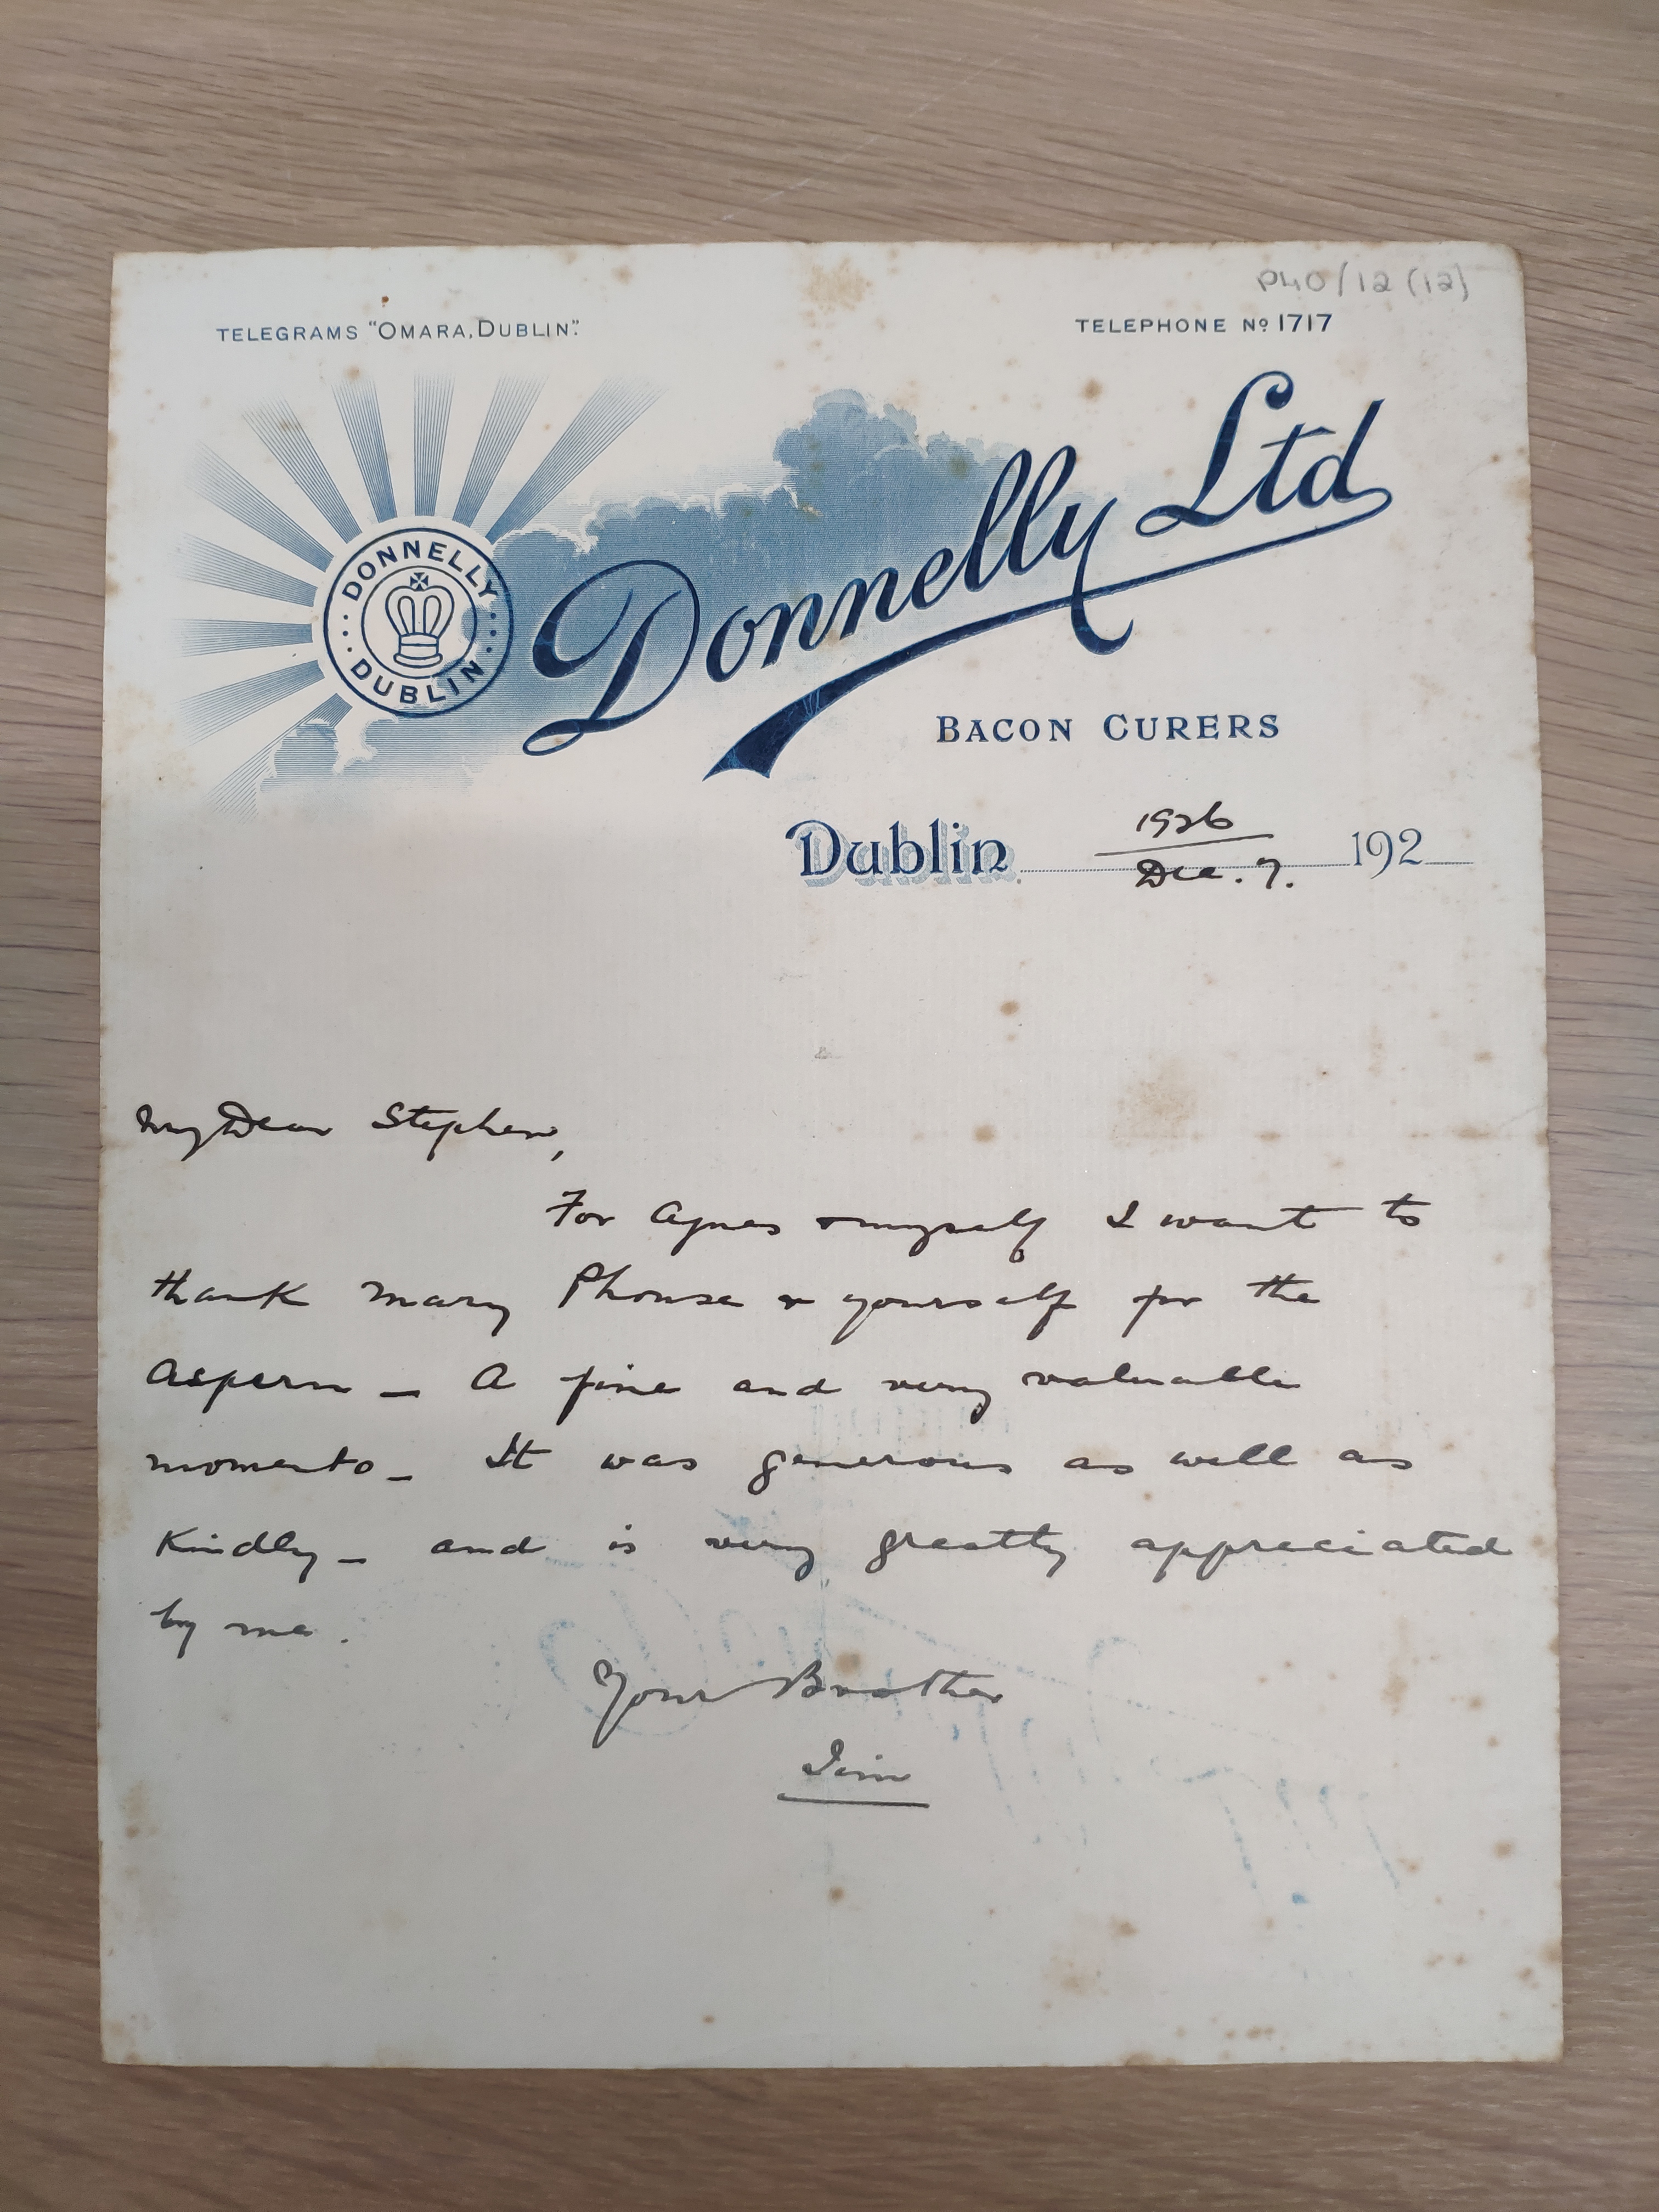 P40/12 (12)
TELEGRAMS "OMARA, DUBLIN".
TELEPHONE No 1717
DONNELLY
DUBLIN
Donnelly Ltd
BACON CURERS
1926
Dublin 192
Dec. 7.
My Dear Stephen,
For Agnes & myself I want to
thank Mary Phonse & yourself for the
Aspern – A fine and very valuable
momento – It was generous as well as
Kindly – and is very greatly appreciated
by me.
Your Brother
Jim